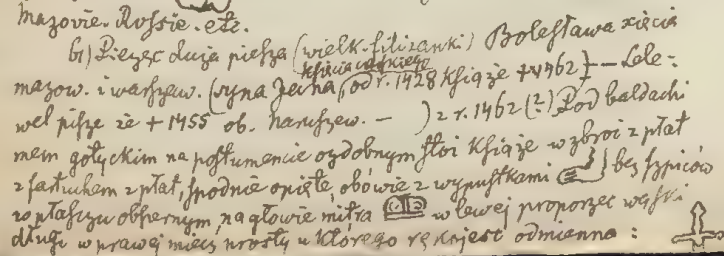 Mazovie. Russie. etc.
b) Pieczęć duża piesza (wielk. filiżanki) Bolesława xięcia
księcia
mazow. i warszaw. (syna Janna, od r. 1428 książe + 1462) – Lele:
wel pisze że + 1455 ob. naruszew. – ) z r. 1462 (?) Pod baldachi
mem gotyckim na postumencie ozdobnym stoi książe w zbroi z płat
z fartuchem z płat, spodnie opięte, obówie z wypustkami bez szpiców
w płaszczu obszernym, na głowie mitra w lewej proporzec wąski
długi w prawej miecz prosty u którego rękojeść odmienna :